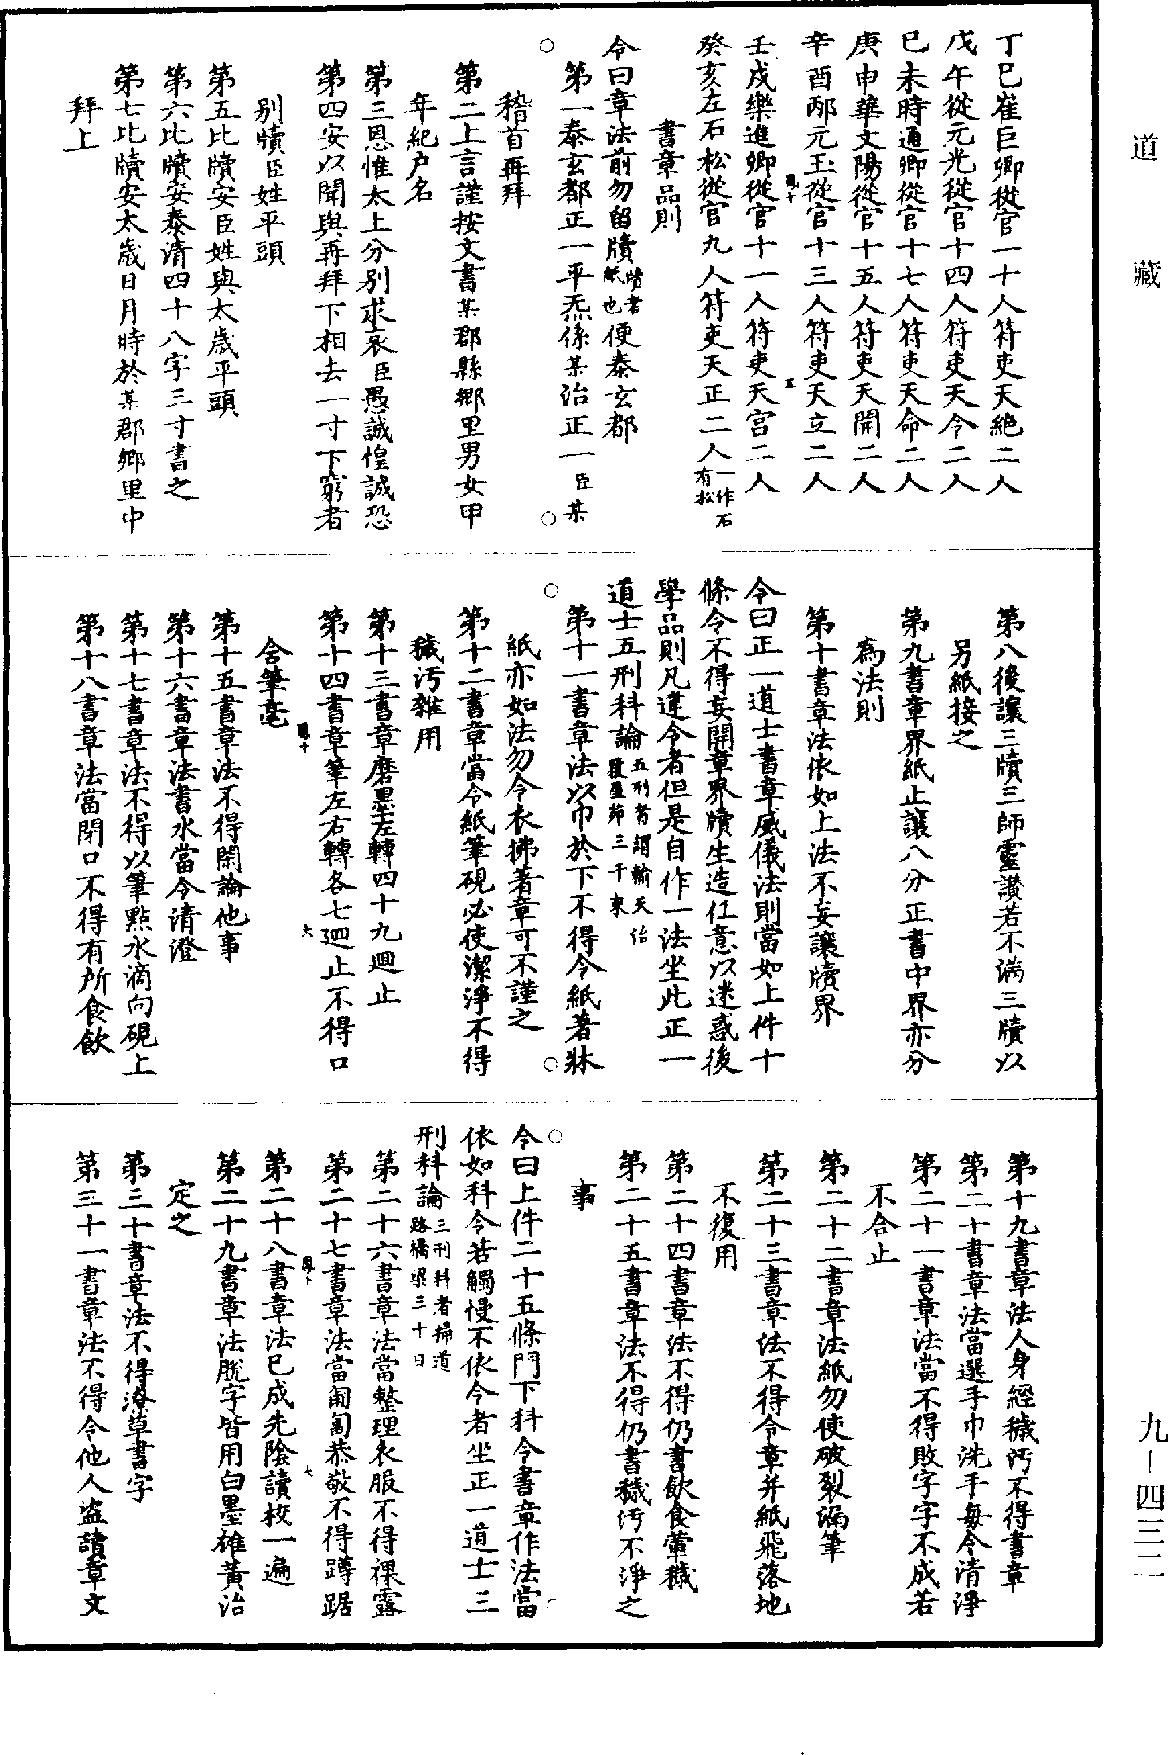 道藏
丁巳崔巨卿從官一十人符吏天絕二人
戊午從元光從官十四人符吏天令二人
己未時通卿從官十七人符吏天命二人
庚申華文陽從官十五人符吏天開二人
辛酉邴元玉從官十三人符吏天立二人
壬戌樂進卿從官十一人符吏天宮二人
癸亥左石松從官九人符吏天正二人一作石有松
書章品則
令曰章法前勿留牘牘者紙也便泰玄都
第一泰玄都正一平炁係某治正一臣某
稽首再拜
第二上言謹按文書某郡縣鄉里男女甲
年紀户名
第三恩惟太上分别求哀臣愚誠惶誠恐
第四安以聞與再拜下相去一寸下窮者
别牘臣姓平頭
第五比牘安臣姓與太歲平頭
第六比牘安泰清四十八字三寸書之
第七比牘安太歲日月時於某郡鄉里中
拜上
第八後讓三牘三師靈讚若不滿三牘以
另紙接之
第九書章界紙止讓八分正書中界亦分
為法則
第十書章法依如上法不妄讓牘界
令曰正一道士書章威儀法則當如上件十
條令不得妄開章界牘生造任意以迷惑後
學品則凡違令者但是自作一法坐此正一
道士五刑科論五刑者謂輸天伯覆壘茆三千束
第十一書章法以巾於下不得令紙著牀
紙亦如法勿令衣拂著章可不謹之
第十二書章當令紙筆硯必使潔淨不得
穢污雜用
第十三書章磨墨左轉四十九迴止
第十四書章筆左右轉各七迴止不得口
含筆毫
第十五書章法不得閑論他事
第十六書章法書水當令清澄
第十七書章法不得以筆點水滴向硯上
第十八書章法當閉口不得有所食飲
第十九書章法人身經穢污不得書章
第二十書章法當選手巾洗手每令清淨
第二十一書章法當不得敗字字不成若
不合止
第二十二書章法紙勿使破裂漏筆
第二十三書章法不得令章并紙飛落地
不復用
第二十四書章法不得仍書飲食葷穢
第二十五書章法不得仍書穢污不淨之
事
令曰上件二十五條門下科令書章作法當
依如科令若觸慢不依令者坐正一道士三
刑科論三刑科者掃道路橋梁三十日
第二十六書章法當整理衣服不得裸露
第二十七書章法當匍匐恭敬不得蹲踞
第二十八書章法已成先陰讀校一遍
第二十九書章法脫字皆用白墨雄黃治
定之
第三十書章法不得潦草書字
第三十一書章法不得令他人盜讀章文
九－四三二